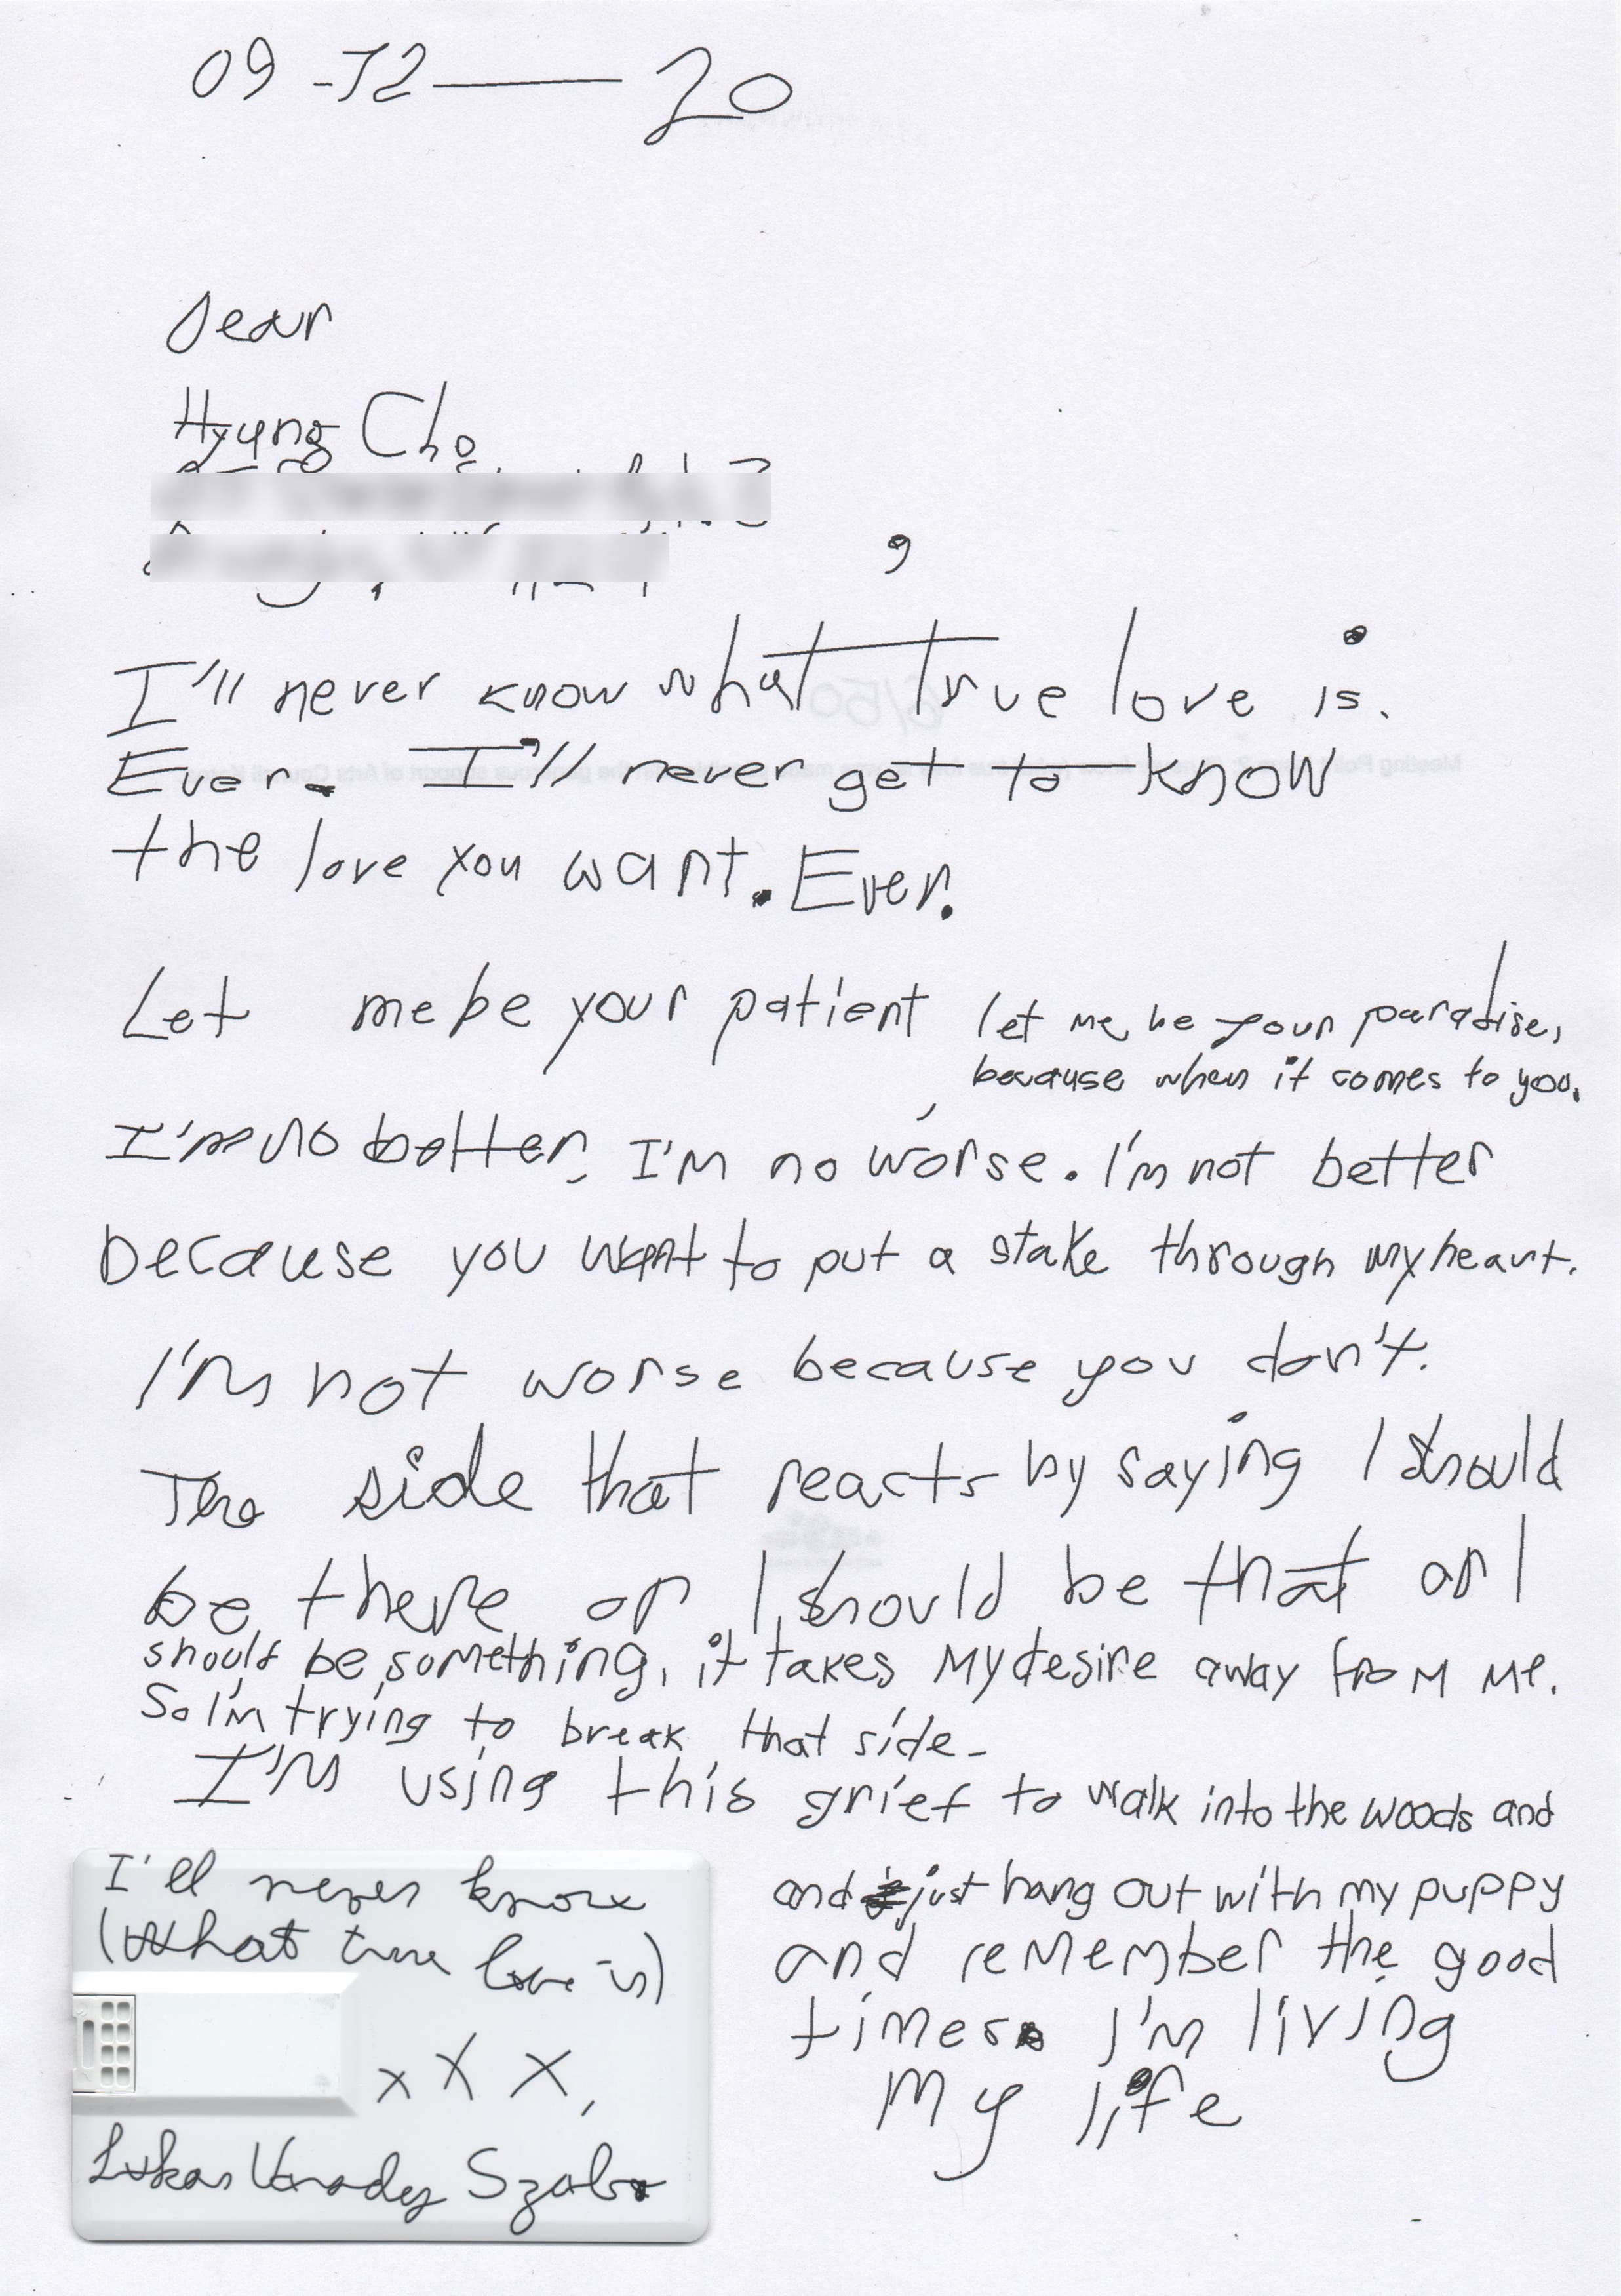 09-12—20
Dear
Hyung Cho
,
I'll never know what true love is.
Ever. I'll never get to know
the love you want. Ever.
Let me be your patient let me be your paradise,
because when it comes to you,
I'm no better, I'm no worse. I'm not better
because you want to put a stake through my heart.
I'm not worse because you don't.
The side that reacts by saying I should
be there or I should be that or I
should be something, it takes my desire away from me.
So I'm trying to break that side.
I'm using this grief to walk into the woods and
and just hang out with my puppy
and remember the good
times. I'm living
my life
I'll never know
(What true love is)
x X X,
Lukas Varady Szabo